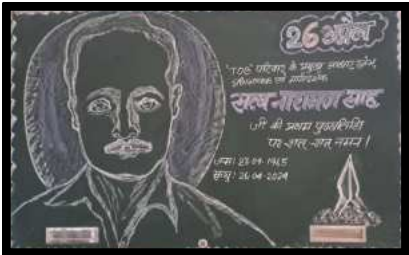 26 अप्रैल
'TOB' परिवार के प्रमुख आधार स्तंभ,
एवं मार्गदर्शक
सत्य नारायण साह
जी की प्रथम पुण्यतिथि
पर शत्-शत् नमन!
जन्म: 23-09-1965
मृत्यु: 26-04-2024